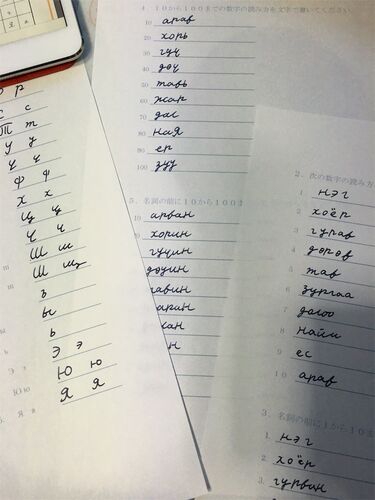 р
С с
Т т
У у
Ү ү
Ф ф
Х х
Ц ц
Ч ч
Ш ш
Щ щ
ъ
ы
ь
Э э
Ю ю
Я я
4. 10から100までの数字の読み方を文字で書いてください
10 арав
20 хорь
30 гуч
40 дөч
50 тавь
60 жар
70 дал
80 ная
90 ер
100 зуу
5. 名詞の前に10から100ま
10 арван
20 хорин
30 гучин
дөчин
тавин
арин
н
2. 次の数字の読み方
1 нэг
2 хоёр
3 гурав
4 дөрөв
5 тав
6 зургаа
7 долоо
8 найм
9 ес
10 арав
3. 名詞の前に1から10ま
1. нэг
2. хоёр
3. гурван